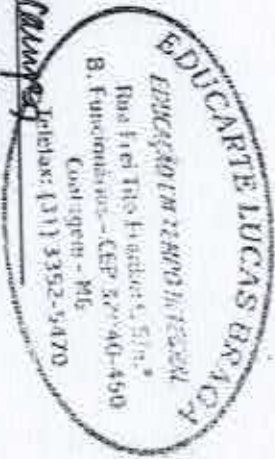 EDUCARTE LUCAS BRAGA
EDUCAÇÃO EM TEMPO INTEGRAL
Rua Frei Tito
B. Funcionários - CEP
Contagem - MG
Telefax: (31) 3352-5470